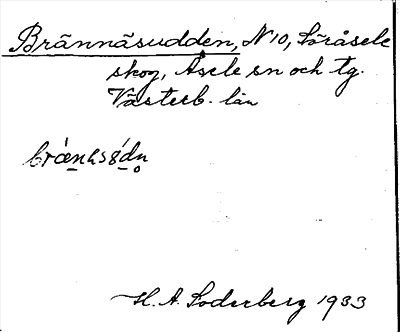 Brännäsudden, N 10, Söråsele
skog, Åsele sn och tg.
Västerb. län
H. A. Söderberg 1933